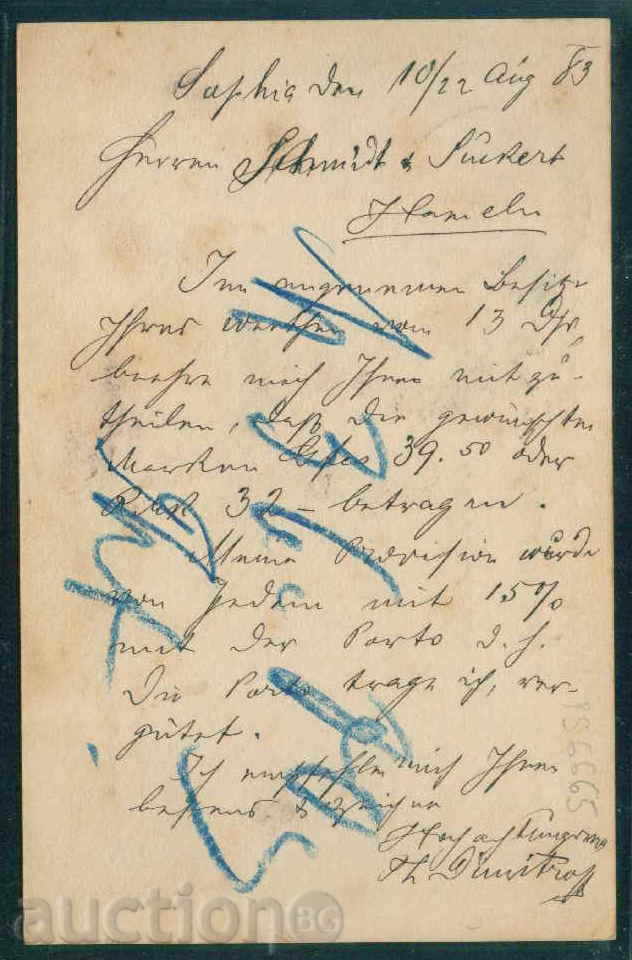 Sophia den 10/22 Aug 83
Herren Schmidt & Suckert
Hameln
Im angenemen Besitze
Ihres werthen vom 13 Ds,
beehre mich Ihnen mitzu-
theilen, daß die gewünschten
Marken Lfcs 39.50 oder
Rmk 32 – betragen.
Meine Provision wurde
von Jedem mit 15%
mit der Porto d.h.
Die Porto trage ich, ver-
gütet.
Ich empfehle mich Ihnen
bestens & zeichne
Hochachtungsvoll
Th Dimitroff
196665
auction BG